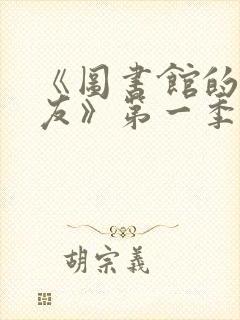 《圖書館的
友》第一季
胡宗義